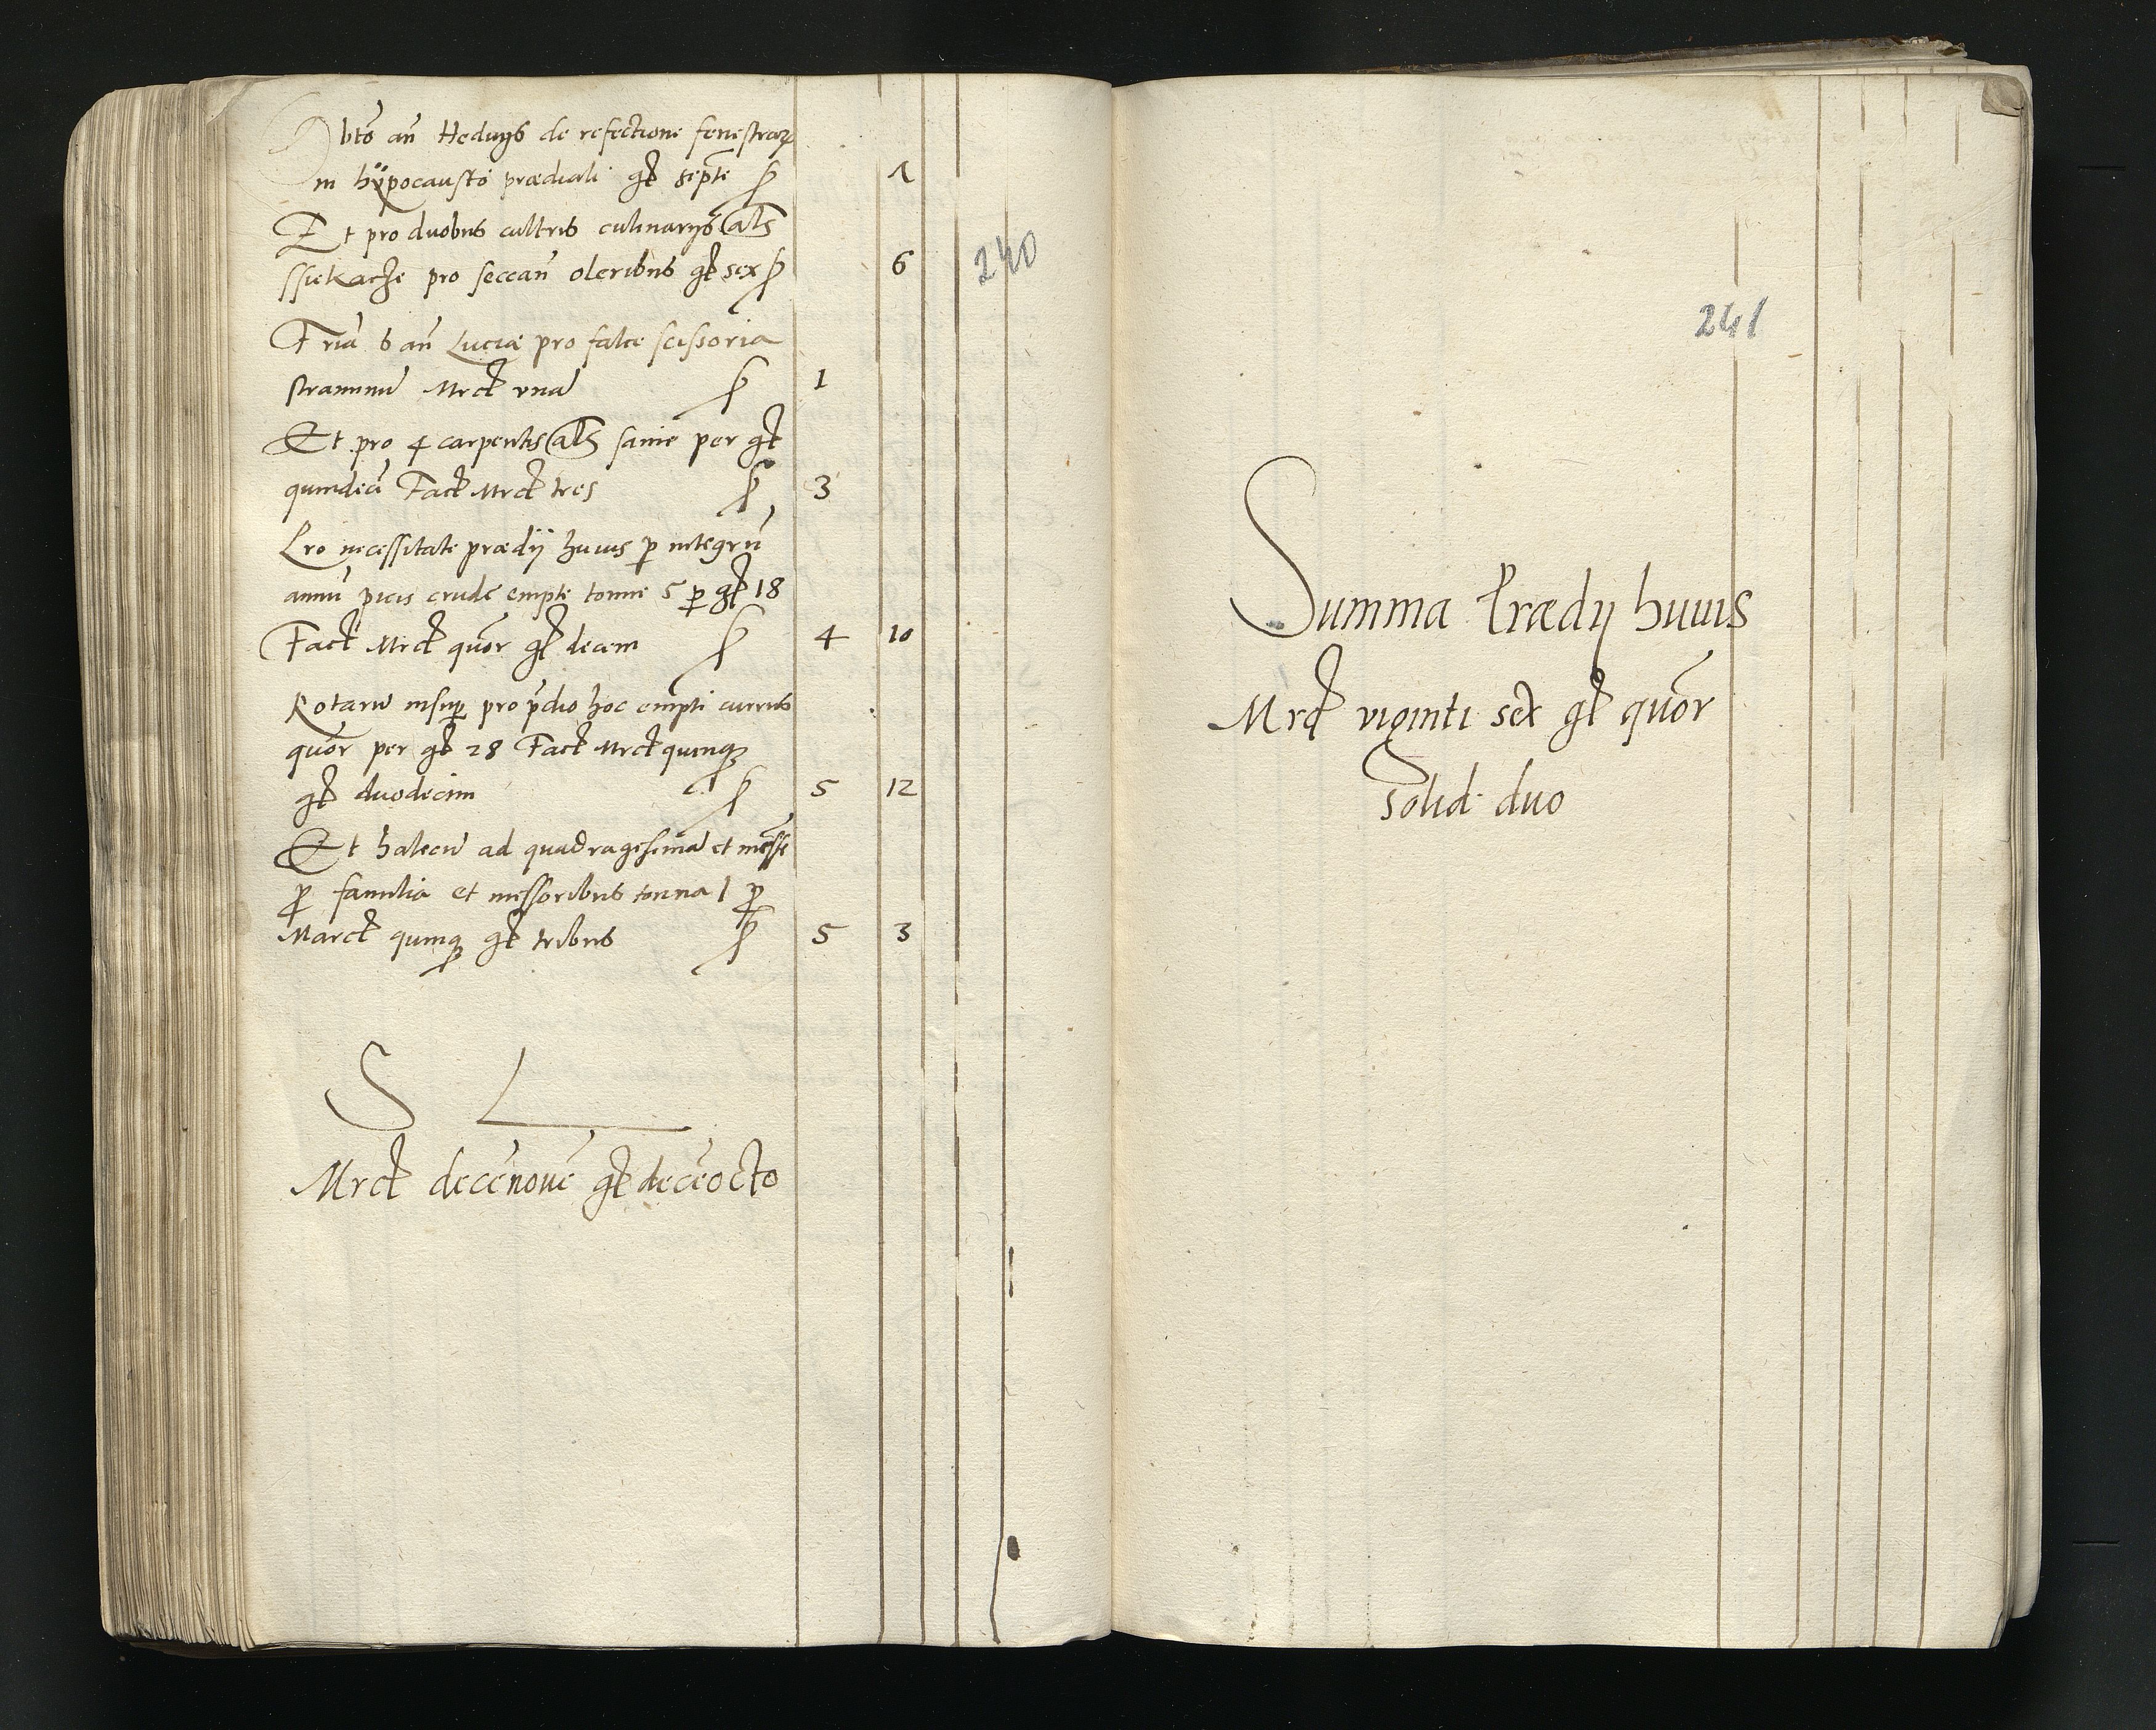 Sbto añ Heduijs de refectione fenestraꝝ
in hÿpocausto prædiali gꝉ septē 1
Et pro duobus cultris culinarijs als
ssiekacze pro seccañ oleribus gꝉ sex 6
240
Fria 6 añ Luciæ pro falce scissoria
straminū Mrcꝉ vnā 1
Et pro 4 carpentis als sanie per gꝉ
quindeci Facꝉ Mrcꝉ tres 3
Pro necessitate prædij huius ꝑ integrū
annū picis crude empte tonne 5 ꝑ gꝉ 18
Facꝉ Mrcꝉ quor gꝉ decem 4 10
Rotarū insuꝑ pro p̄dio hoc empti currus
quor per gꝉ 28 Facꝉ Mrcꝉ quinqꝫ
gꝉ duodecim 5 12
Et halecū ad quadragesimā et messē
ꝓ familia et messoribus tonna 1 ꝑ
Marcꝉ quinqꝫ gꝉ tribus 5 3
S L
Mrcꝉ decēnouē gꝉ decēocto
241
Summa Prædij huius
Mrcꝉ viginti sex gꝉ quor
solid. duo